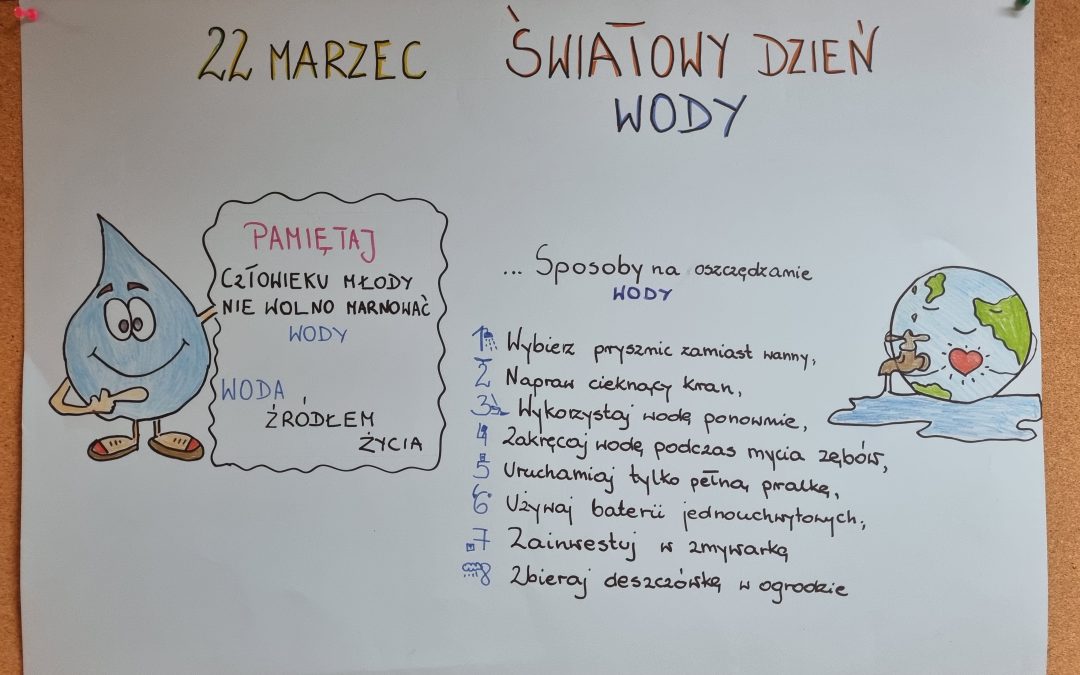 22 MARZEC
ŚWIATOWY DZIEŃ
WODY
PAMIĘTAJ
CZŁOWIEKU MŁODY
NIE WOLNO MARNOWAĆ
WODY
WODA
ŹRÓDŁEM
ŻYCIA
... Sposoby na oszczędzanie
WODY
1 Wybierz prysznic zamiast wanny,
2 Napraw cieknący kran,
3 Wykorzystaj wodę ponownie,
4 Zakręcaj wodę podczas mycia zębów,
5 Uruchamiaj tylko pełną pralkę,
6 Używaj baterii jednouchwytowych,
7 Zainwestuj w zmywarką
8 Zbieraj deszczówką w ogrodzie